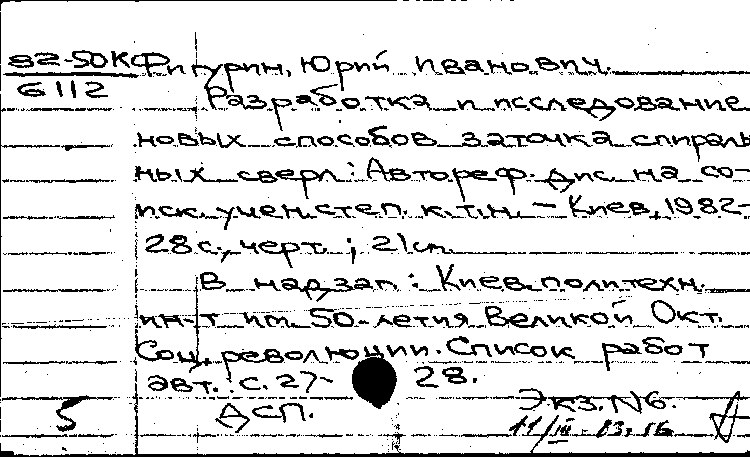 82-50К Фигурин, Юрий Иванович.
6112
Разработка и исследование
новых способов заточка спираль
ных сверл: Автореф. дис. на со-
иск. учен. степ. к.т.н. – Киев, 1982-
28с., черт.; 21см.
В надзаг: Киев. политехн.
ин-т им. 50-летия Великой Окт.
Соц. революции. Список работ
авт.: с. 27- 28.
5 ДСП. Экз. N6.
11/III-83.